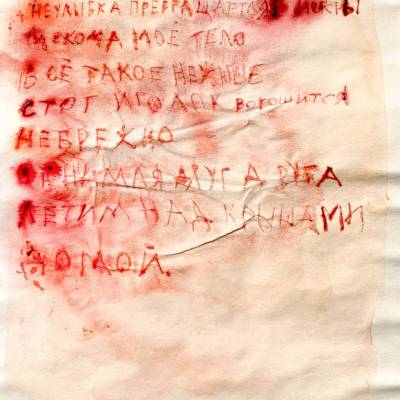 НЕУЛЫБКА ПРЕВРАЩАЕТСЯ
МОЁ ТЕЛО
ВСЁ ТАКОЕ НЕЖНОЕ
СТОГ ИГОЛОК ворошится
НЕБРЕЖНО
ОБНИМАЯ ДРУГ ДРУГА
ЛЕТИМ НАД КРЫШАМИ
ДОМОЙ.